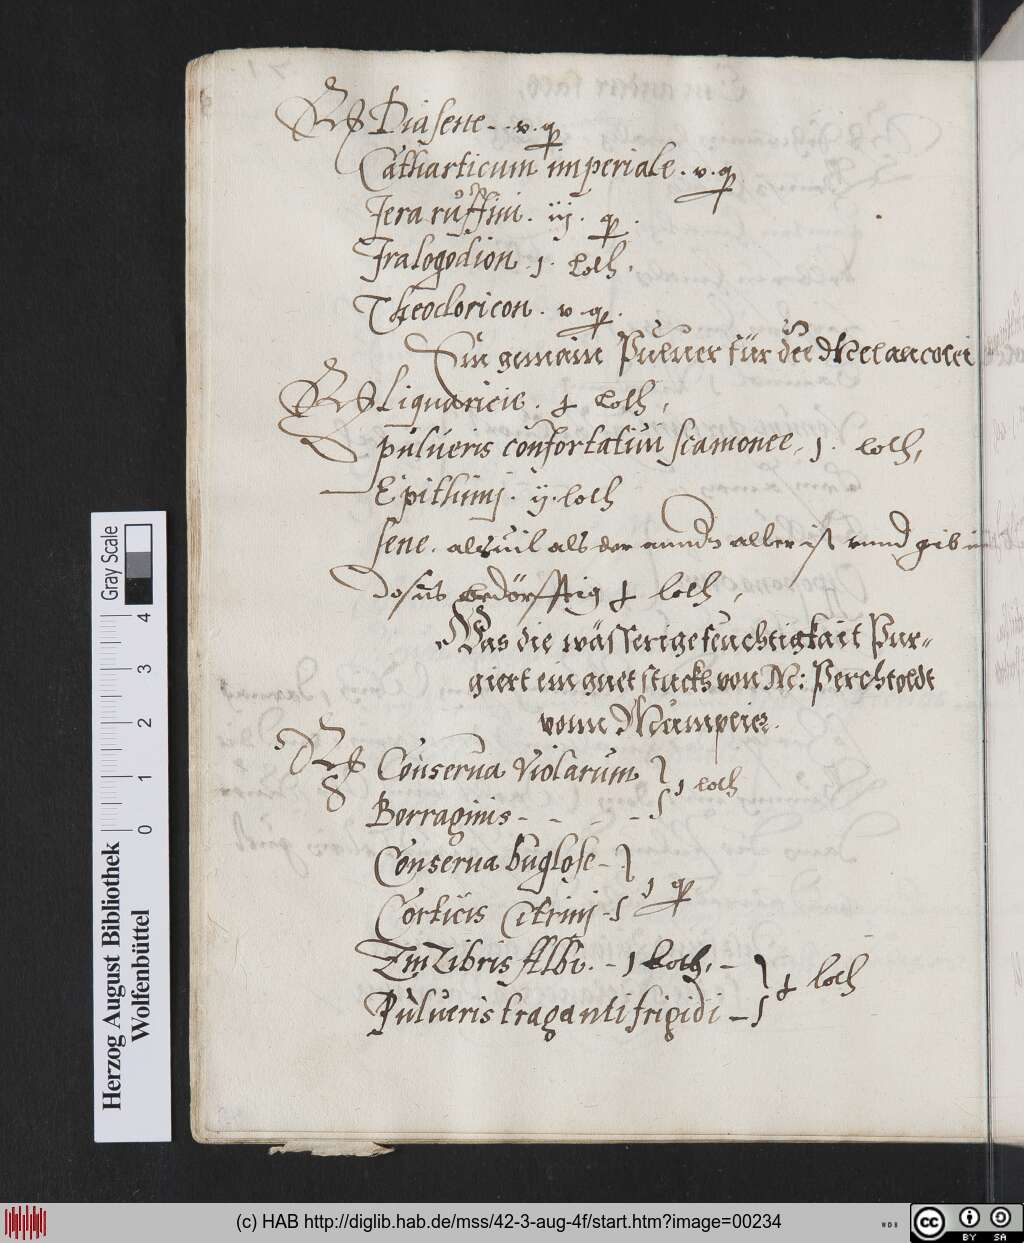 Diasene - v.
Catharticum imperiale . v.
Jera ruffini . iij .
Jralogodion . j . Loth .
Theodoricon . v .
Ein gemain Puluer für die Melancolei
Liquaricie . Loth ,
pulueris confortatiui scamonee , j . Loth ,
Epithimj . ij . loth
sene . alsuil als der anndn aller ist vnnd gib
bedörfftig loth ,
Was die wässerige feüchtigkait Pur-
giert ein guet stuckh von M: Perchtoldt
vonn
Conserua Violarum
j loth
Borraginis - - - -
Conserua buglose -
j
Corticis Citrinj -
Emlibris Albi . - j Loth, -
loth
Pulueris traganti frigidi -
Gray Scale
Herzog August Bibliothek
Wolfenbüttel
0 1 2 3 4
(c) HAB http://diglib.hab.de/mss/42-3-aug-4f/start.htm?image=00234
WDB
cc BY SA